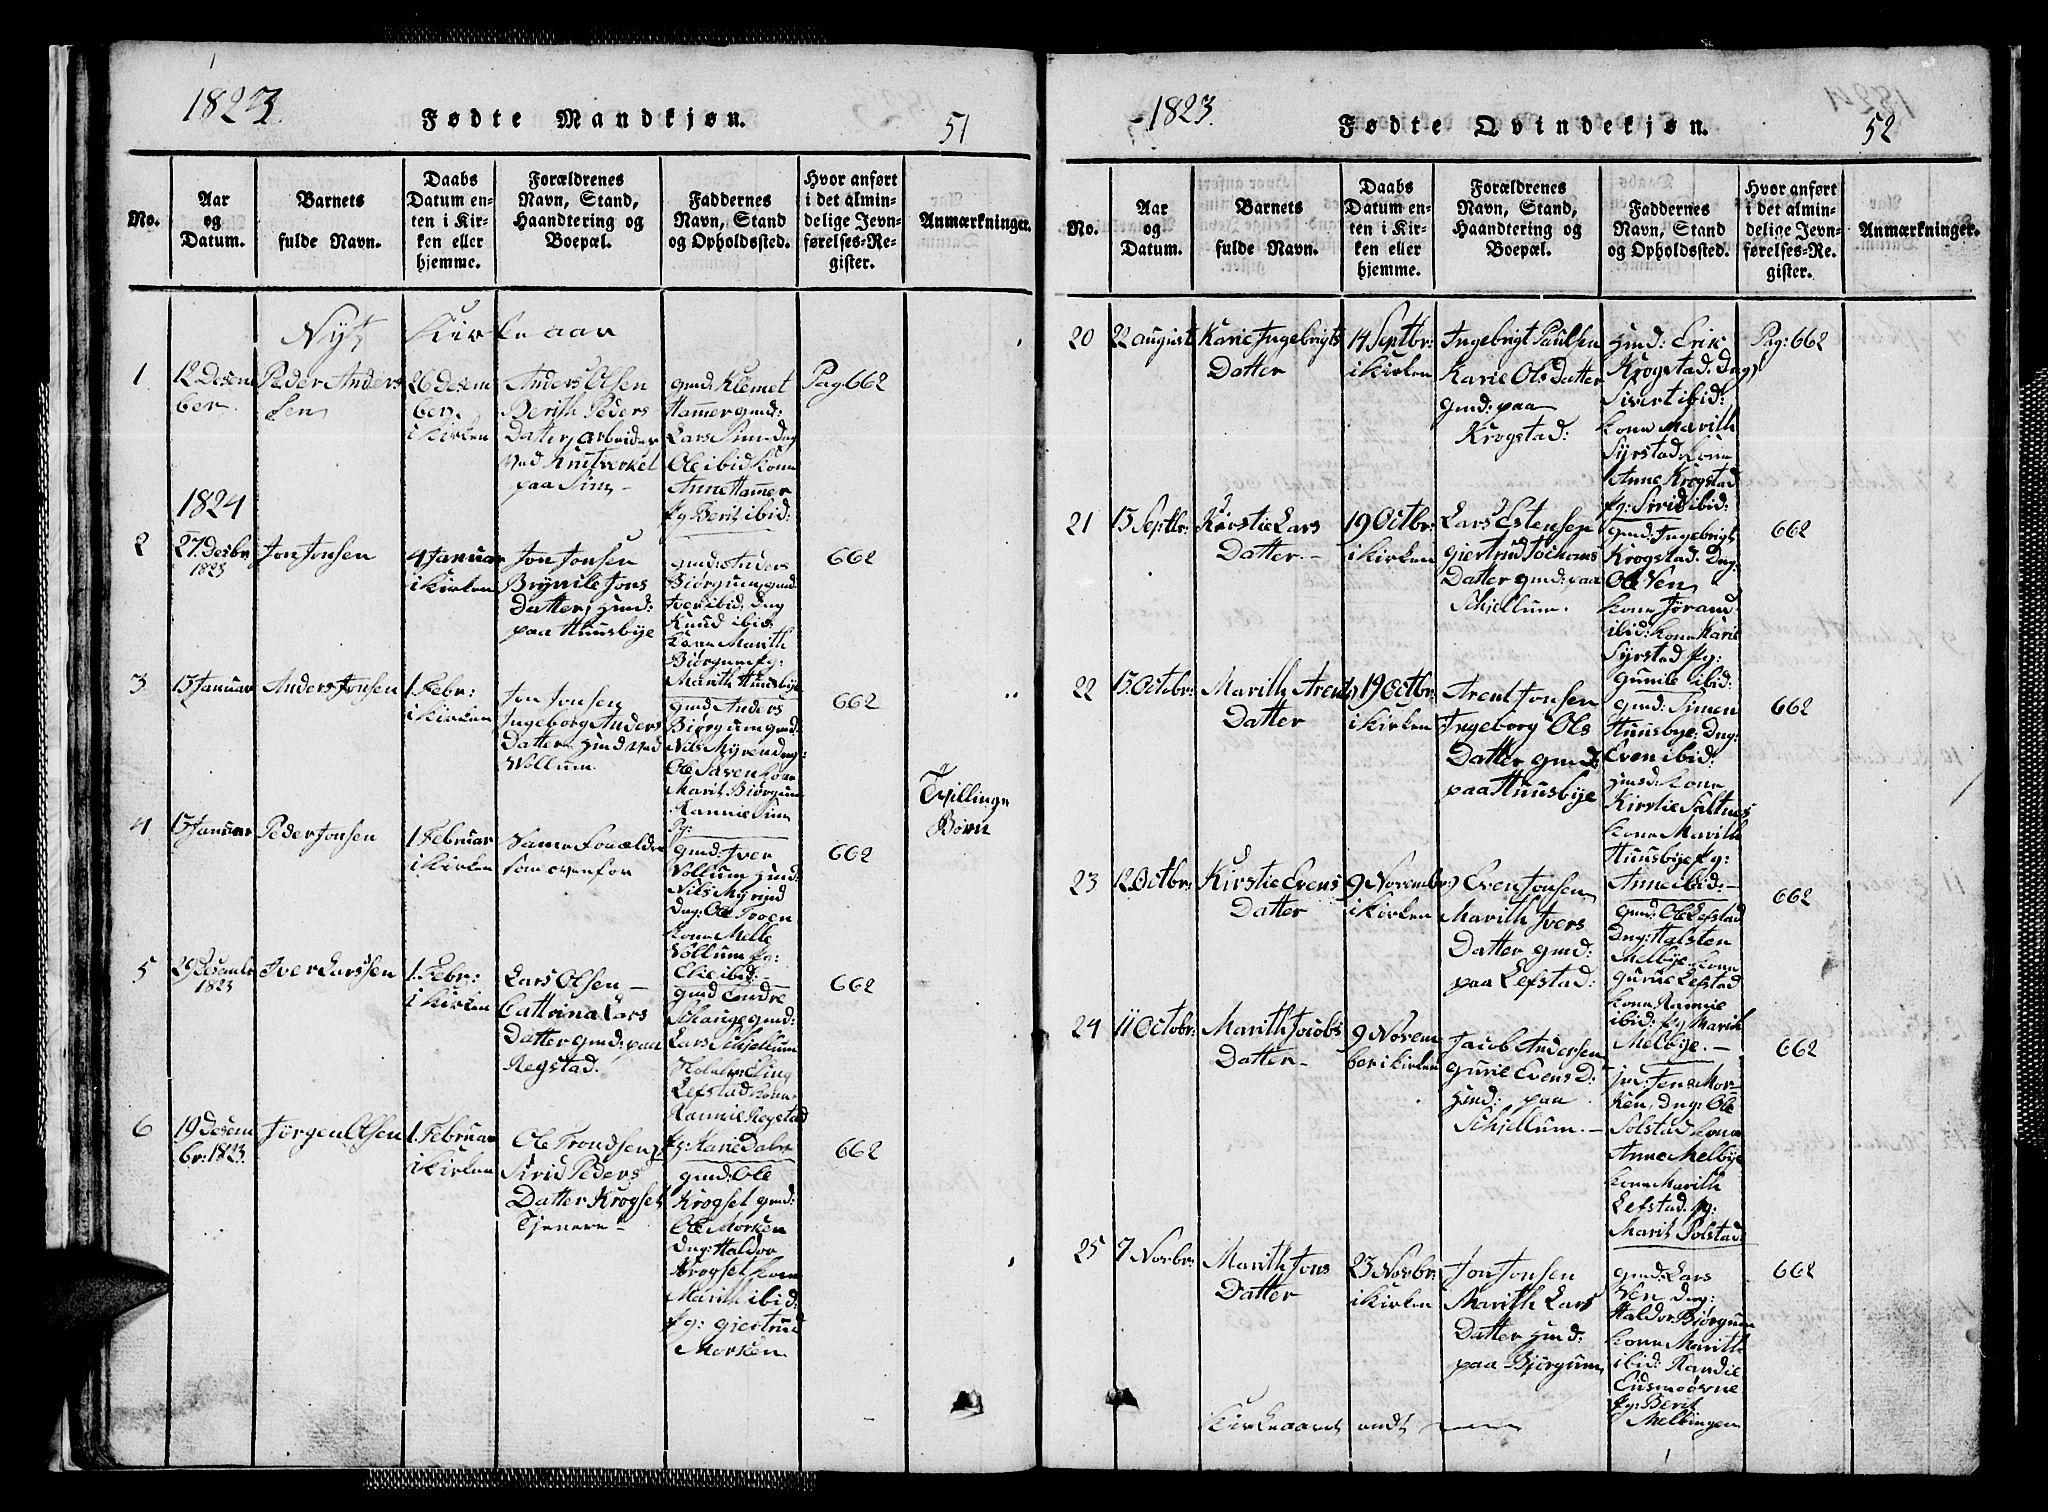 1823.
Fødte Mandkjøn.
51
No.
Aar
og
Datum.
Barnets
fulde Navn.
Daabs
Datum en-
ten i Kir-
ken eller
hjemme.
Forældrenes
Navn, Stand,
Haandtering og
Boepæl.
Faddernes
Navn, Stand
og Opholdssted.
Hvor anført
i det almin-
delige Jevn-
førelses-Re-
gister.
Anmærkninger.
Nyt Kirkeaar
1
12 Desem
ber.
Peder Anders
sen
26 Desem
ber.
i Kirken
Anders Olsen
Berith Peders
Datter, arbeider
ved
paa Sim
gmd: Klemet
Hammer gmd:
Lars Sim dng
Ole ibid kone
Anne Hammer
pg: Berit ibid:
Pag 662
1824
2
27 Desbr
1823
Jon Jonsen
4 Januar
i Kirken
Jon Jonsen
Brynile Jons
Datter, Huusd:
paa Huusbye
gmd: Anders
Biørgum gmd:
Iver ibid: dng
Knud ibid:
Kone Marith
Biørgum pg:
Marith Huusbye
662
3
15 Januar
Anders Jonsen
1 Febr:
i Kirken
Jon Jonsen
Ingeborg Anders
Datter ved
Vollum.
gmd: Anders
Biørgum gmd:
Nils Myren dng:
Ole kone
Marit Biørgum
Rannie Sim
pg:
662
4
15 Januar
Peder Jonsen
1 Februar
i Kirken
Samme Forældre
som ovenfor
gmd: Iver
Vollum
Nils
dng: Ole Troen
kone Melle
Vollum pg:
Elie ibid:
662
Tvillinge
Børn
5
29 Desembr
1823
Iver Larssen
1. Febr:
i Kirken
Lars Olsen
Cathrina Lars
Datter gmd: paa
Regstad.
gmd
Schauge gmd:
Lars Schjellum
Eling
Lefstad kone
Rannie Regstad
pg: Karie
662
6
19 Desem
br: 1823.
Jørgen Olsen
1. Februar
i Kirken
Ole Trondsen
Sirid Peders
Datter Krogset
Tjenere
gmd: Ole
Krogset gmd:
Ole Morken
dng: Haldor
Krogset kone
Marith ibid:
pg: Giertrud
Morken
662
1823.
Fødte Qvindekjøn.
52
No.
Aar
og
Datum.
Barnets
fulde Navn.
Daabs
Datum en-
ten i Kir-
ken eller
hjemme.
Forældrenes
Navn, Stand,
Haandtering og
Boepæl.
Faddernes
Navn, Stand
og Opholdssted.
Hvor anført
i det almin-
delige Jevn-
førelses-Re-
gister.
Anmærkninger.
20
22 august
Karie Ingebrigts
Datter
14 Septbr:
i Kirken
Ingebrigt Paulsen
Karie Ols Datter
gmd: paa
Krogstad:
Huusd: Erik
Krogstad: dng
Sivert ibid:
kone Marith
Syrstad kone
Anne Krogstad
pg: Sirid ibid:
Pag: 662
21
15 Septbr:
Kirstie Lars
Datter
19 Octbr:
i Kirken
Lars Estensen
Giertrud Jochoms
Datter gmd: paa
Schjellum.
gmd: Ingebrigt
Krogstad. Dng:
Ole Ven
kone Jøran
ibid: kone Karie
Syrstad pg:
Gunile ibid:
662
22
15 Octbr:
Marith Arents
Datter
19 Octbr:
i Kirken
Arent Jonsen
Ingeborg Ols
Datter gmd:
paa Huusbye
gmd: Simen
Huusbye: Dng:
Even ibid:
Huusd: kone
Kirstie Saltnes
kone Marith
Huusbye pg:
Anne ibid:
662
23
12 Octbr:
Kirstie Evens
Datter
9 Novembr:
i Kirken
Even Jonsen
Marith Ivers
Datter gmd:
paa Lefstad:
gmd: Ole Lefstad
Dng: Halsten
Melbye kone
Gurue Lefstad
kone Rannie
ibid: pg Marith
Melbye.
662
24
11 Octobr:
Marith Jacobs
Datter
9 Novem
ber i Kirken
Jacob Andersen
Gurie Evens D:
Huusd: paa
Schjellum.
Jens Mor
ken, dng: Ole
Solstad kone
Anne Melbye
kone Marith
Lefstad. pg:
Marit Solstad
662
25
7 Novbr:
Marith Jons
Datter
23 Novbr:
i Kirken
Jon Jonsen
Marith Lars
Datter Huusd:
paa Biørgum
gmd: Lars
Ven dng:
Haldor Biørgum
kone Marith
ibid: Randie
Eidsmoøvne
pg: Berit
Melbingen
662
Kirkeaaret endt